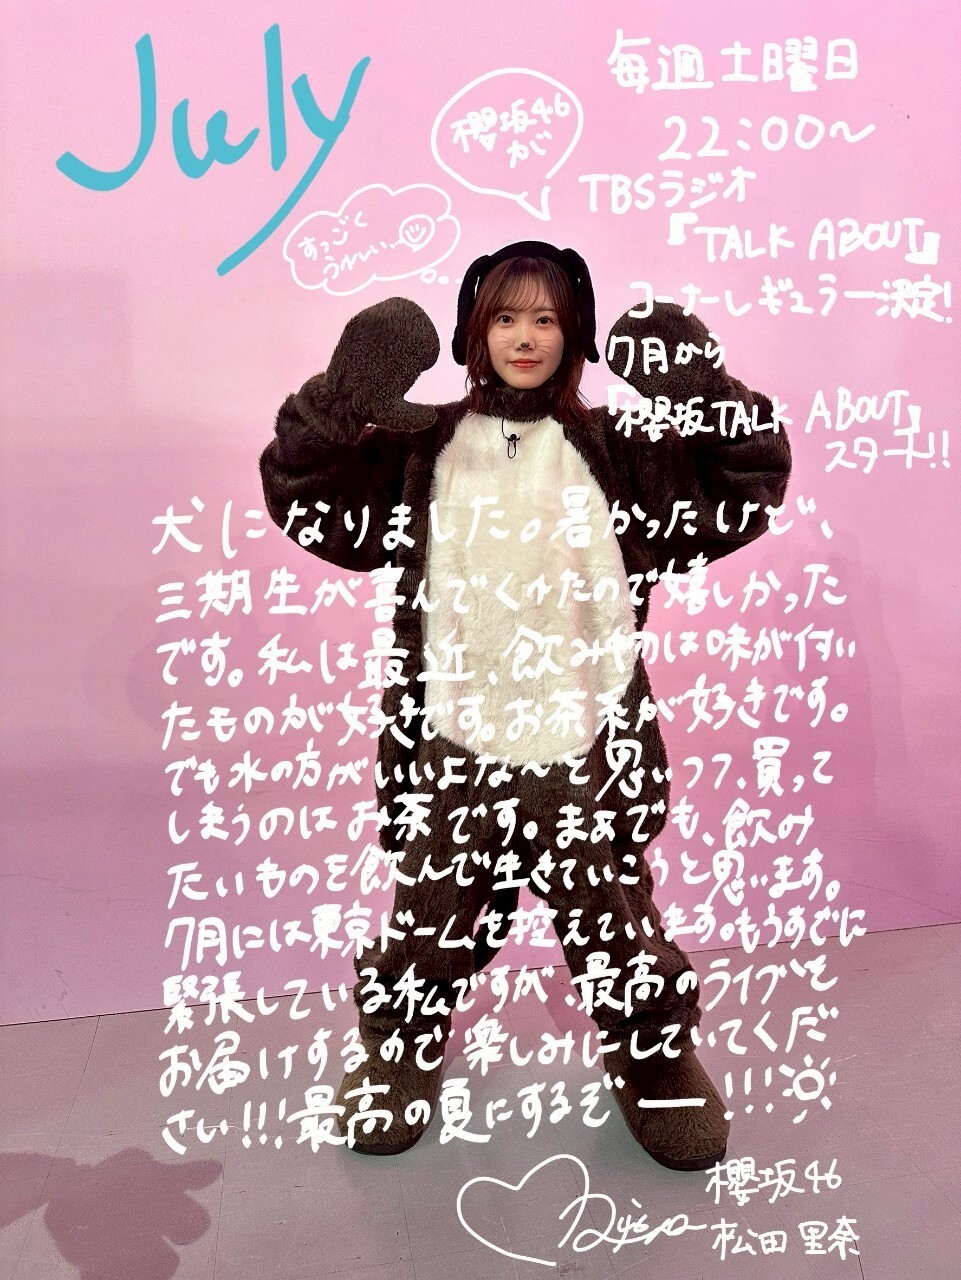 July
毎週土曜日
22:00〜
TBSラジオ
『TALK ABOUT』
コーナーレギュラー決定!
7月から
『櫻坂TALK ABOUT』
スタート!!
櫻坂46
が
すっごく
うれしい…
犬になりました。暑かったけど、
三期生が喜んでくれたので嬉しかった
です。私は最近、飲み物は味が付い
たものが好きです。お茶系が好きです。
でも水の方がいいよな〜と思いつつ、買って
しまうのはお茶です。まぁでも、飲み
たいものを飲んで生きていこうと思います。
7月には東京ドームを控えています。もうすでに
緊張している私ですが、最高のライブを
お届けするので楽しみにしていてくだ
さい!!!最高の夏にするぞー!!!
櫻坂46
松田里奈